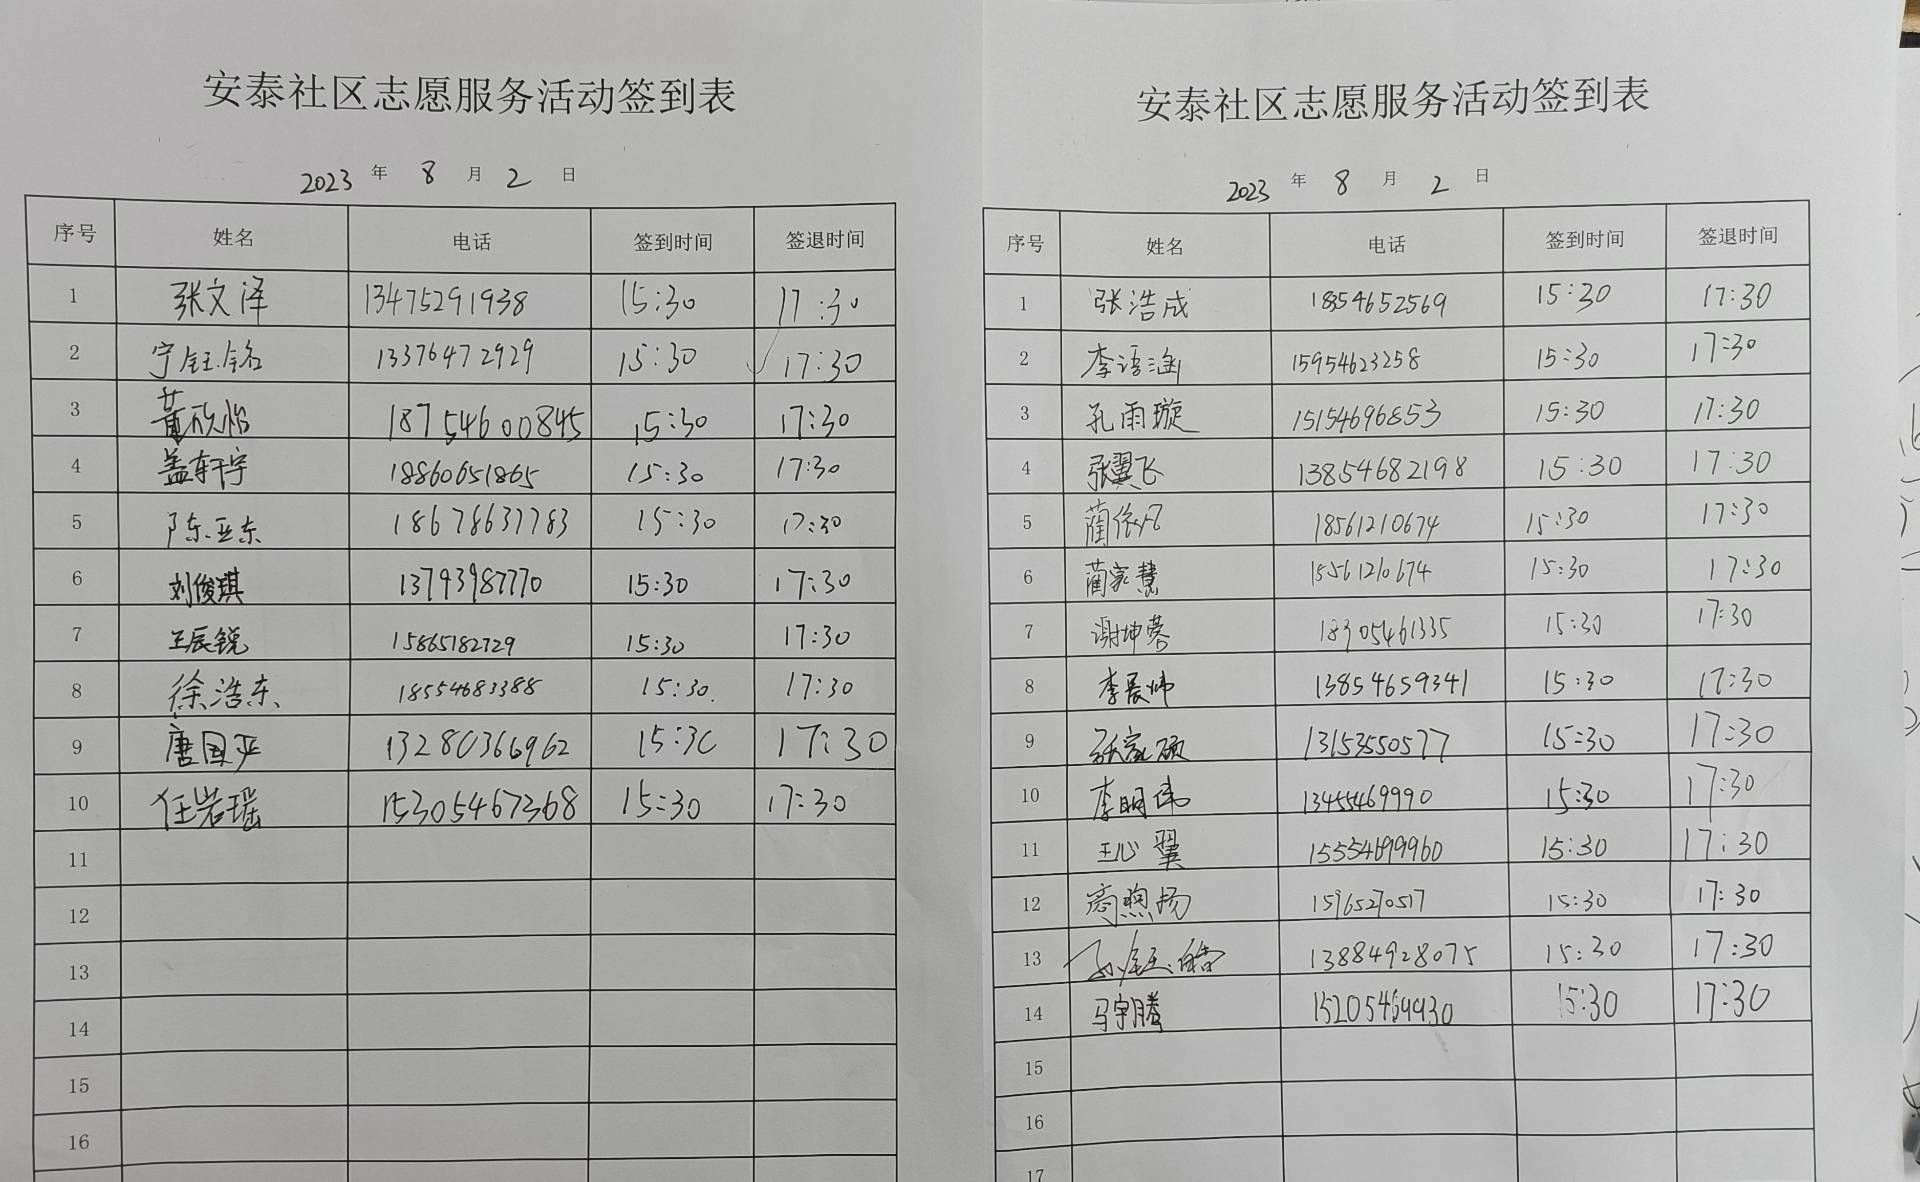 安泰社区志愿服务活动签到表
2023 年 8 月 2 日
序号 姓名 电话 签到时间 签退时间
1 张文泽 13475291938 15:30 17:30
2 宁钰铭 13376472929 15:30 17:30
3 董欣怡 18754600845 15:30 17:30
4 盖轩宇 18860051865 15:30 17:30
5 陈亚东 18678631783 15:30 17:30
6 刘俊琪 13793987770 15:30 17:30
7 王辰锐 15865182729 15:30 17:30
8 徐浩东 18554683388 15:30 17:30
9 唐国严 13280366962 15:30 17:30
10 任岩瑶 15305467368 15:30 17:30
11
12
13
14
15
16
安泰社区志愿服务活动签到表
2023 年 8 月 2 日
序号 姓名 电话 签到时间 签退时间
1 张浩成 18554652569 15:30 17:30
2 李语涵 15954623258 15:30 17:30
3 孔雨璇 15154696853 15:30 17:30
4 张翼飞 13854682198 15:30 17:30
5 蔺依凡 18561210674 15:30 17:30
6 蔺家慧 15561210674 15:30 17:30
7 谢坤蓉 18305461335 15:30 17:30
8 李晨炜 13854659341 15:30 17:30
9 张家硕 13153550577 15:30 17:30
10 李明伟 13455469990 15:30 17:30
11 王心翼 15554699960 15:30 17:30
12 商煦扬 15965270517 15:30 17:30
13 孙钰皓 13884928075 15:30 17:30
14 马宇腾 15205469930 15:30 17:30
15
16
17